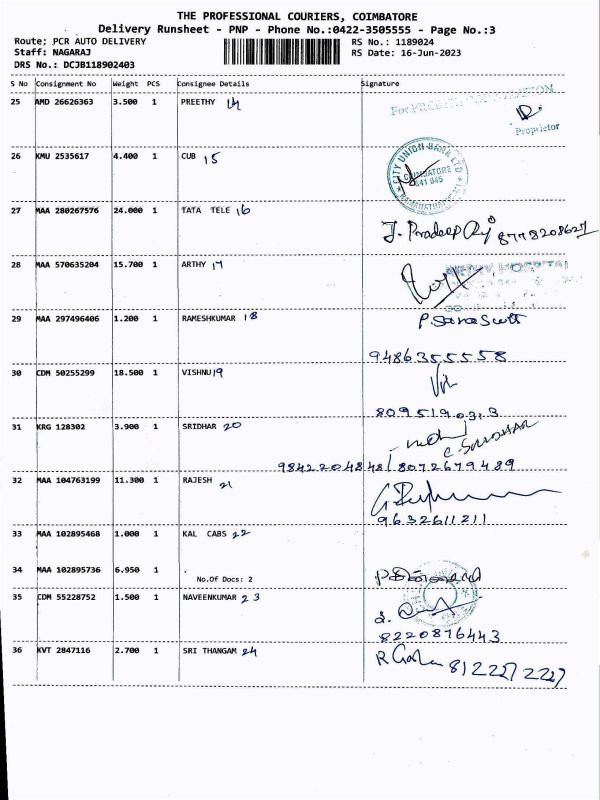 THE PROFESSIONAL COURIERS, COIMBATORE
Delivery Runsheet - PNP - Phone No.:0422-3505555 - Page No.:3
Route; PCR AUTO DELIVERY RS No.: 1189024
Staff: NAGARAJ RS Date: 16-Jun-2023
DRS No.: DCJB118902403
S No Consignment No Weight PCS Consignee Details Signature
25 AMD 26626363 3.500 1 PREETHY 14
For
Proprietor
26 KMU 2535617 4.400 1 CUB 15
CITY UNION BANK LTD
COIMBATORE
641 045
27 MAA 280267576 24.000 1 TATA TELE 16
J. Pradeep 8778208627
28 MAA 570635204 15.700 1 ARTHY 17
ARTHY HOSPITAL
29 MAA 297496406 1.200 1 RAMESHKUMAR 18
9486355558
30 CDM 50255299 18.500 1 VISHNU 19
8095190313
31 KRG 128302 3.900 1 SRIDHAR 20
C. SRIDHAR
9842204848 / 8072679489
32 MAA 104763199 11.300 1 RAJESH 21
9632611211
33 MAA 102895468 1.000 1 KAL CABS 22
34 MAA 102895736 6.950 1
No.Of Docs: 2
35 CDM 55228752 1.500 1 NAVEENKUMAR 23
8220876443
36 KVT 2847116 2.700 1 SRI THANGAM 24
8122272227